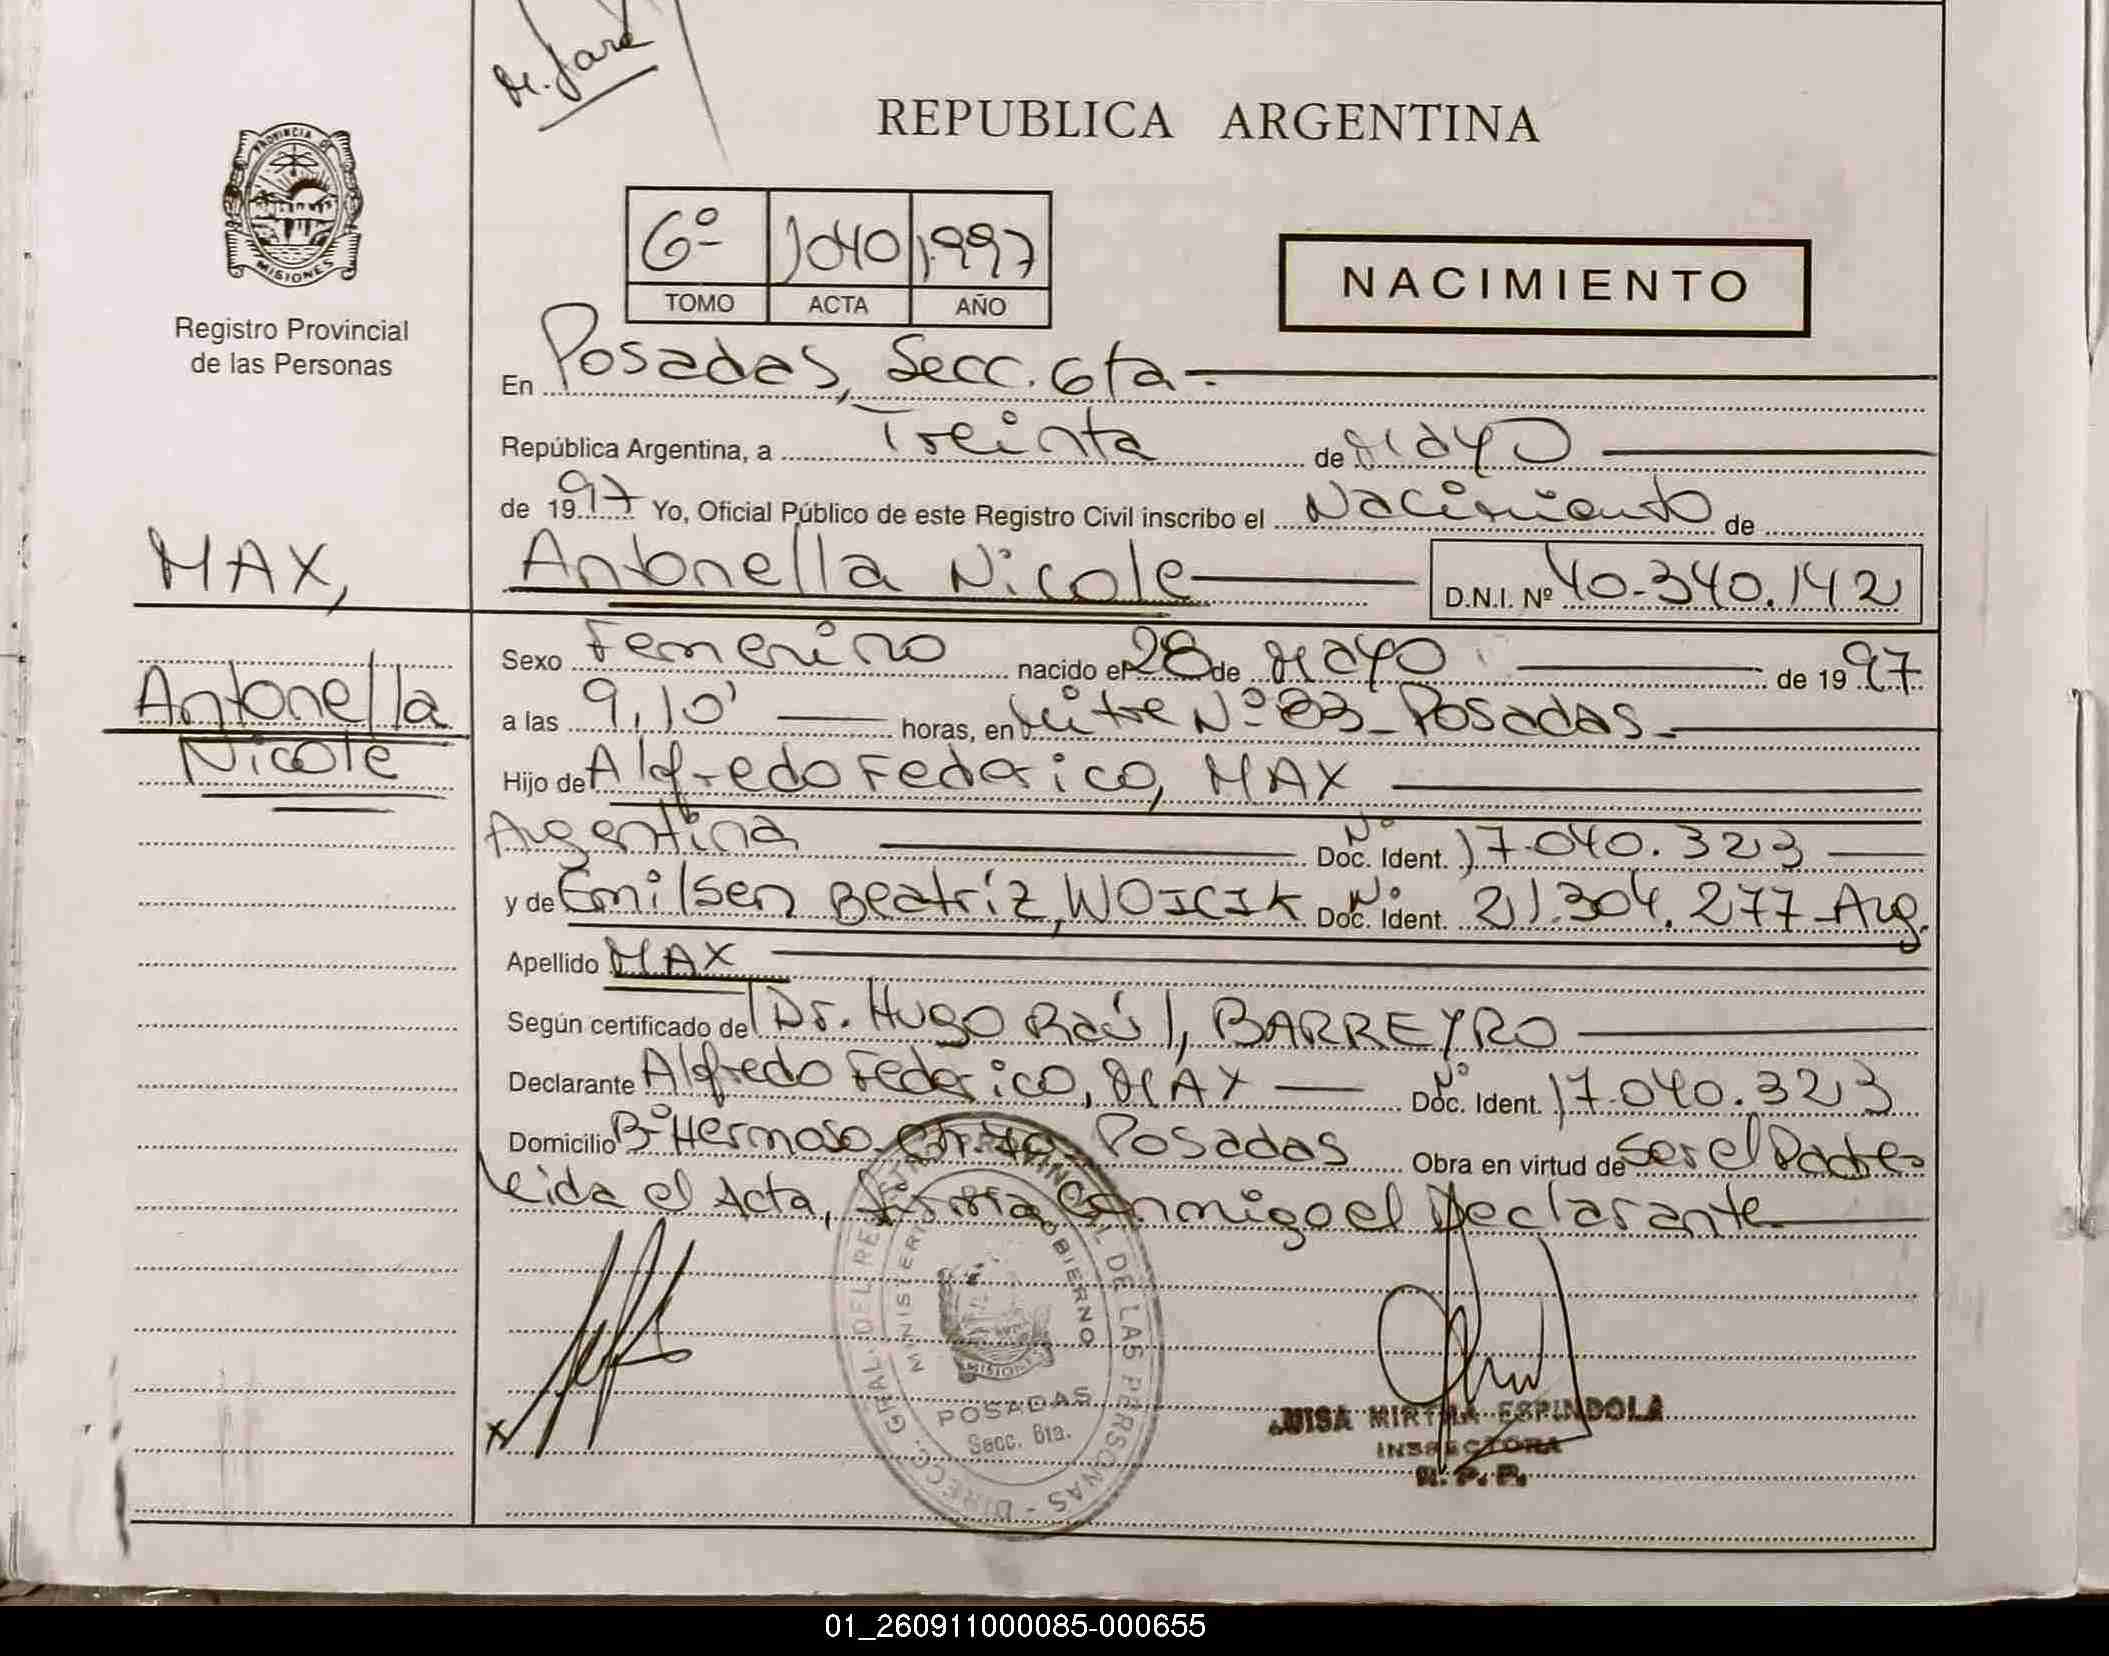 REPUBLICA ARGENTINA
PROVINCIA DE
MISIONES
Registro Provincial
de las Personas
6º 1040 1997
TOMO ACTA AÑO
NACIMIENTO
En Posadas, Secc. 6ta.-
República Argentina, a Treinta de Mayo
de 1997 Yo, Oficial Público de este Registro Civil inscribo el Nacimiento de
MAX,
Antonella Nicole D.N.I. Nº 40.340.142
Antonella
Nicole
Sexo Femenino nacido el 28 de Mayo de 1997
a las 9,10' horas, en Mitre Nº 83 - Posadas -
Hijo de Alfredo Federico, MAX
Argentina Doc. Ident. Nº 17.040.323
y de Emilsen Beatríz, WOJCIK Doc. Ident. Nº 21.304.277 - Arg.
Apellido MAX
Según certificado de Dr. Hugo Raúl, BARREYRO
Declarante Alfredo Federico, MAX Doc. Ident. Nº 17.040.323
Domicilio Bº Hermoso - Posadas Obra en virtud de Ser el Padre
Leida el Acta, firma Conmigo el Declarante
DIRECC. GRAL. DEL REGISTRO PROVINCIAL DE LAS PERSONAS
MINISTERIO DE GOBIERNO
MISIONES
POSADAS
Secc. 6ta.
LUISA MIRTHA ESPINDOLA
INSPECTORA
R. P. P.
01_260911000085-000655